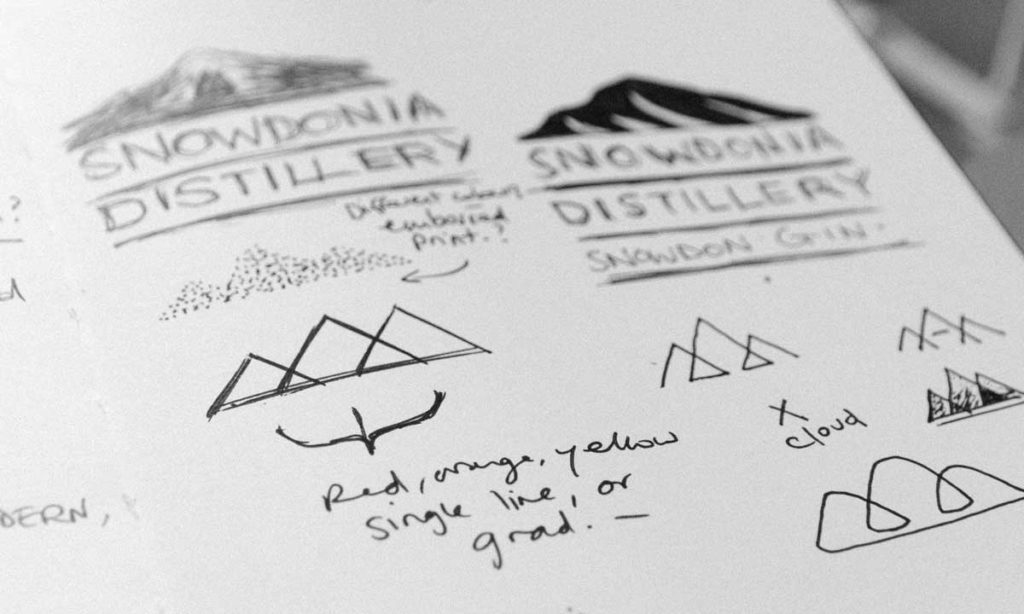 SNOWDONIA
DISTILLERY
SNOWDONIA
DISTILLERY
SNOWDON GIN.
Different when
embossed
print.?
?
d
Red, orange, yellow
single line, or
grad. –
X
cloud
DERN,